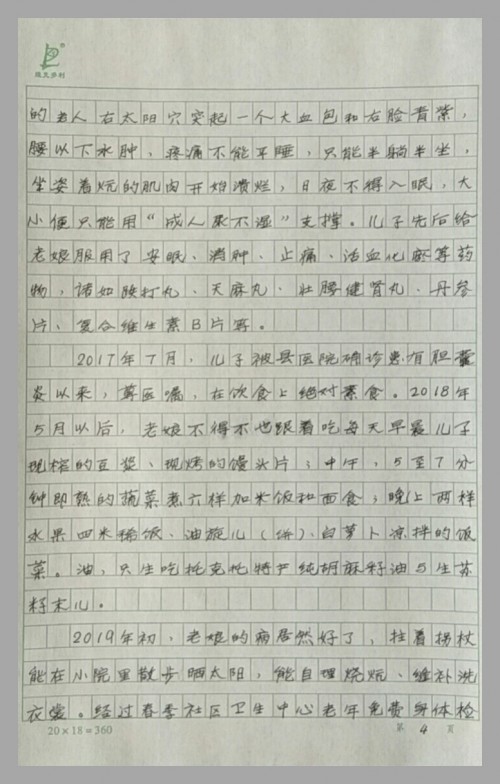 旅天乡利
的老人右太阳穴突起一个大血包和右脸青紫，
腰以下水肿、疼痛不能平睡，只能半躺半坐，
坐姿着炕的肌肉开始溃烂，日夜不得入眠，大
小便只能用“成人尿不湿”支撑。儿子先后给
老娘服用了安眠、消肿、止痛、活血化瘀等药
物，诸如跌打丸、天麻丸、壮腰健肾丸、丹参
片、复合维生素B片等。
2017年7月，儿子被县医院确诊患有胆囊
炎以来，遵医嘱，在饮食上绝对素食。2018年
5月以后，老娘不得不也跟着吃每天早晨儿子
现榨的豆浆、现烤的馒头片；中午，5至7分
钟即熟的蔬菜煮六样加米饭和面食；晚上两样
水果四米稀饭、油旋儿（饼）、白萝卜凉拌的饭
菜。油，只生吃托克托特产纯胡麻籽油与生苏
籽末儿。
2019年初，老娘的病居然好了，拄着拐杖
能在小院里散步晒太阳，能自理烧炕、缝补洗
衣裳。经过春季社区卫生中心老年免费身体检
20×18=360
第 4 页